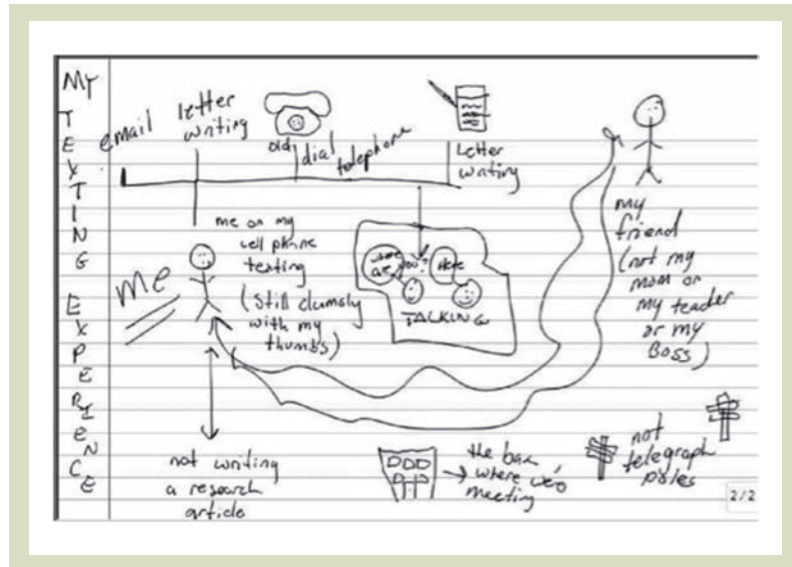 MY TEXTING EXPERIENCE
email
letter
writing
old
dial
telephone
Letter
writing
me on my
cell phone
texting
(still clumsly
with my
thumbs)
me
where
are you?
Here
TALKING
my
friend
(not my
mom or
my teacher
or my
Boss)
not writing
a research
article
the bar
where
meeting
not
telegraph
poles
2/2